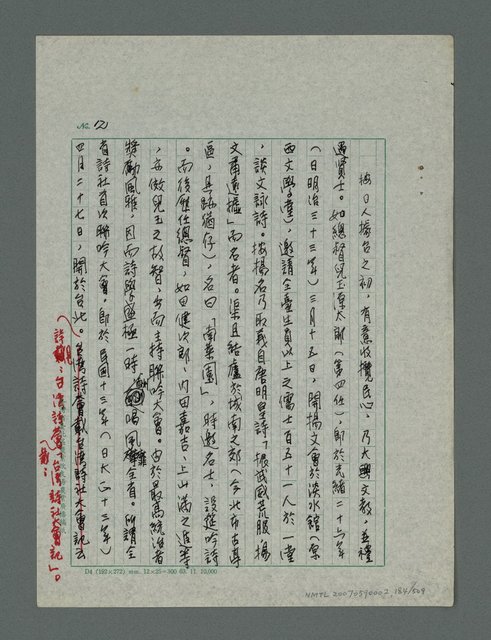 No. 12
按日人據台之初，有意收攬民心，乃大興文教，並禮
遇賢士。如總督兒玉源太郎（第四任），即於光緒二十六年
（日明治三十三年）三月十五日，開揚文會於淡水館（原
西文學堂），邀請全臺生員以上之儒士百五十一人於一堂
，談文詠詩。按揚名乃取義自唐明皇詩「振武威荒服，揚
文肅遠墟」而名者。渠且結廬於城南之郊（今北市古亭
區，具跡猶存），名曰「南菜園」，時邀名士，設筵吟詩
。而後歷任總督，如田健次郎、內田嘉吉、上山滿之進等
，亦倣兒玉之故智，出而主持聯吟大會。由於最高統治者
獎勵風雅，因而詩學盛極一時，唱風靡全省。所謂全
省詩社首次聯吟大會，即於民國十三年（日大正十三年）
四月二十七日，開於台北。台灣詩薈載台灣詩社大會記云
詳載：台灣詩薈「台灣詩社大會記」。
D4 (192×272) mm. 12×25=300 63. 11. 10,000
NMTL 20070590002 184/509